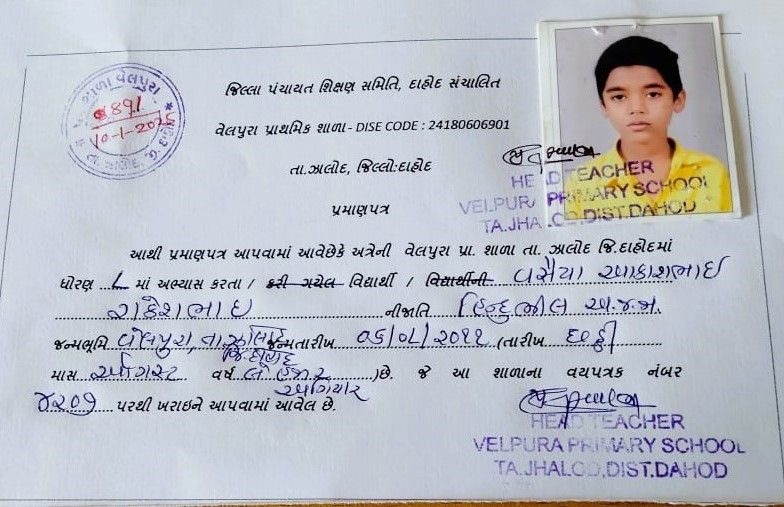 જિલ્લા પંચાયત શિક્ષણ સમિતિ, દાહોદ સંચાલિત
વેલપુરા પ્રાથમિક શાળા - DISE CODE : 24180606901
તા.ઝાલોદ, જિલ્લો:દાહોદ
પ્રમાણપત્ર
શાળા વેલપુરા
891
10-1-2025
HEAD TEACHER
VELPURA PRIMARY SCHOOL
TA.JHALOD,DIST.DAHOD
આથી પ્રમાણપત્ર આપવામાં આવેછેકે અત્રેની વેલપુરા પ્રા. શાળા તા. ઝાલોદ જિ.દાહોદમાં
ધોરણ ૮ માં અભ્યાસ કરતા / કરી ગયેલ વિદ્યાર્થી / વિદ્યાર્થીની વસૈયા આકાશભાઇ
રાકેશભાઇ નીજાતિ હિન્દુભીલ અ.જ.જા.
જન્મભૂમિ વેલપુરા, તા.ઝાલોદ જિ.દાહોદ જન્મતારીખ ૦૬/૦૮/૨૦૧૧ (તારીખ છઠ્ઠી
માસ ઓગસ્ટ વર્ષ બે હજાર અગિયાર )છે. જે આ શાળાના વયપત્રક નંબર
૪૨૦૭ પરથી ખરાઇને આપવામાં આવેલ છે.
HEAD TEACHER
VELPURA PRIMARY SCHOOL
TA.JHALOD,DIST.DAHOD